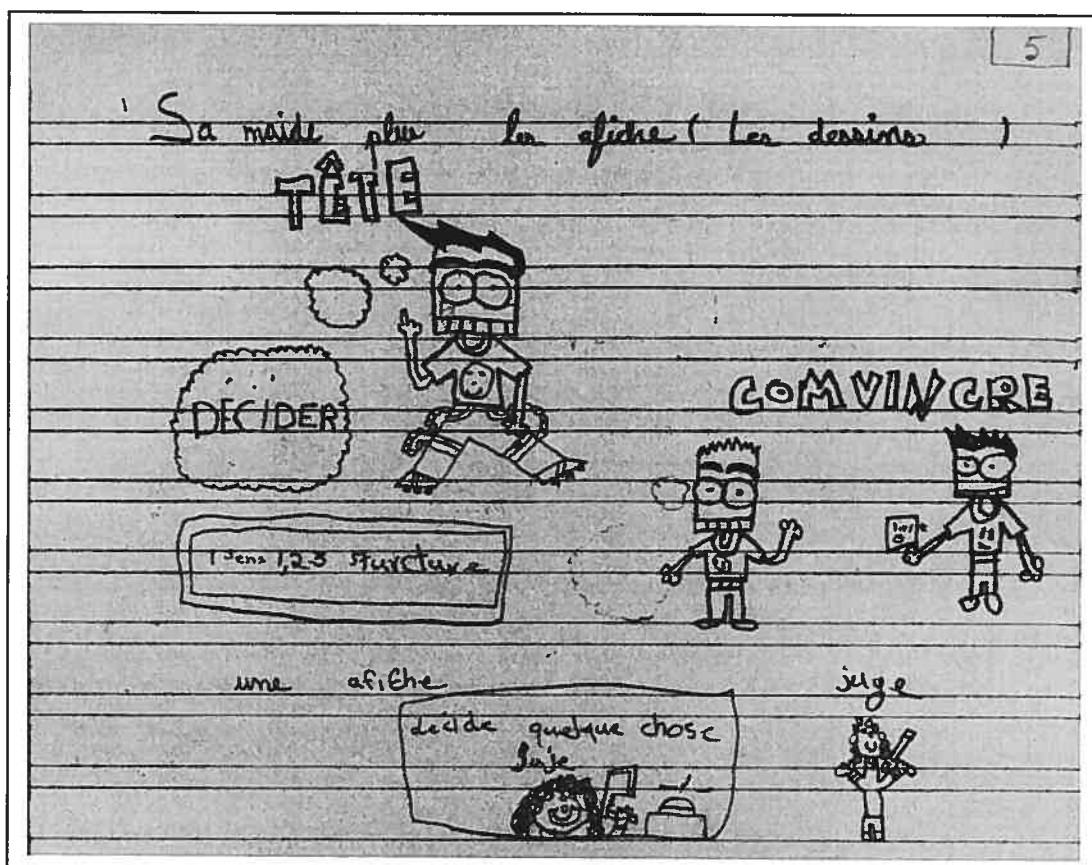 5
Sa maide plus les afiche ( Les dessins )
TÊTE
DÉCIDER
COMVINCRE
1 sens 1,2-3 Sturcture
une afiche
juge
décide quelque chose